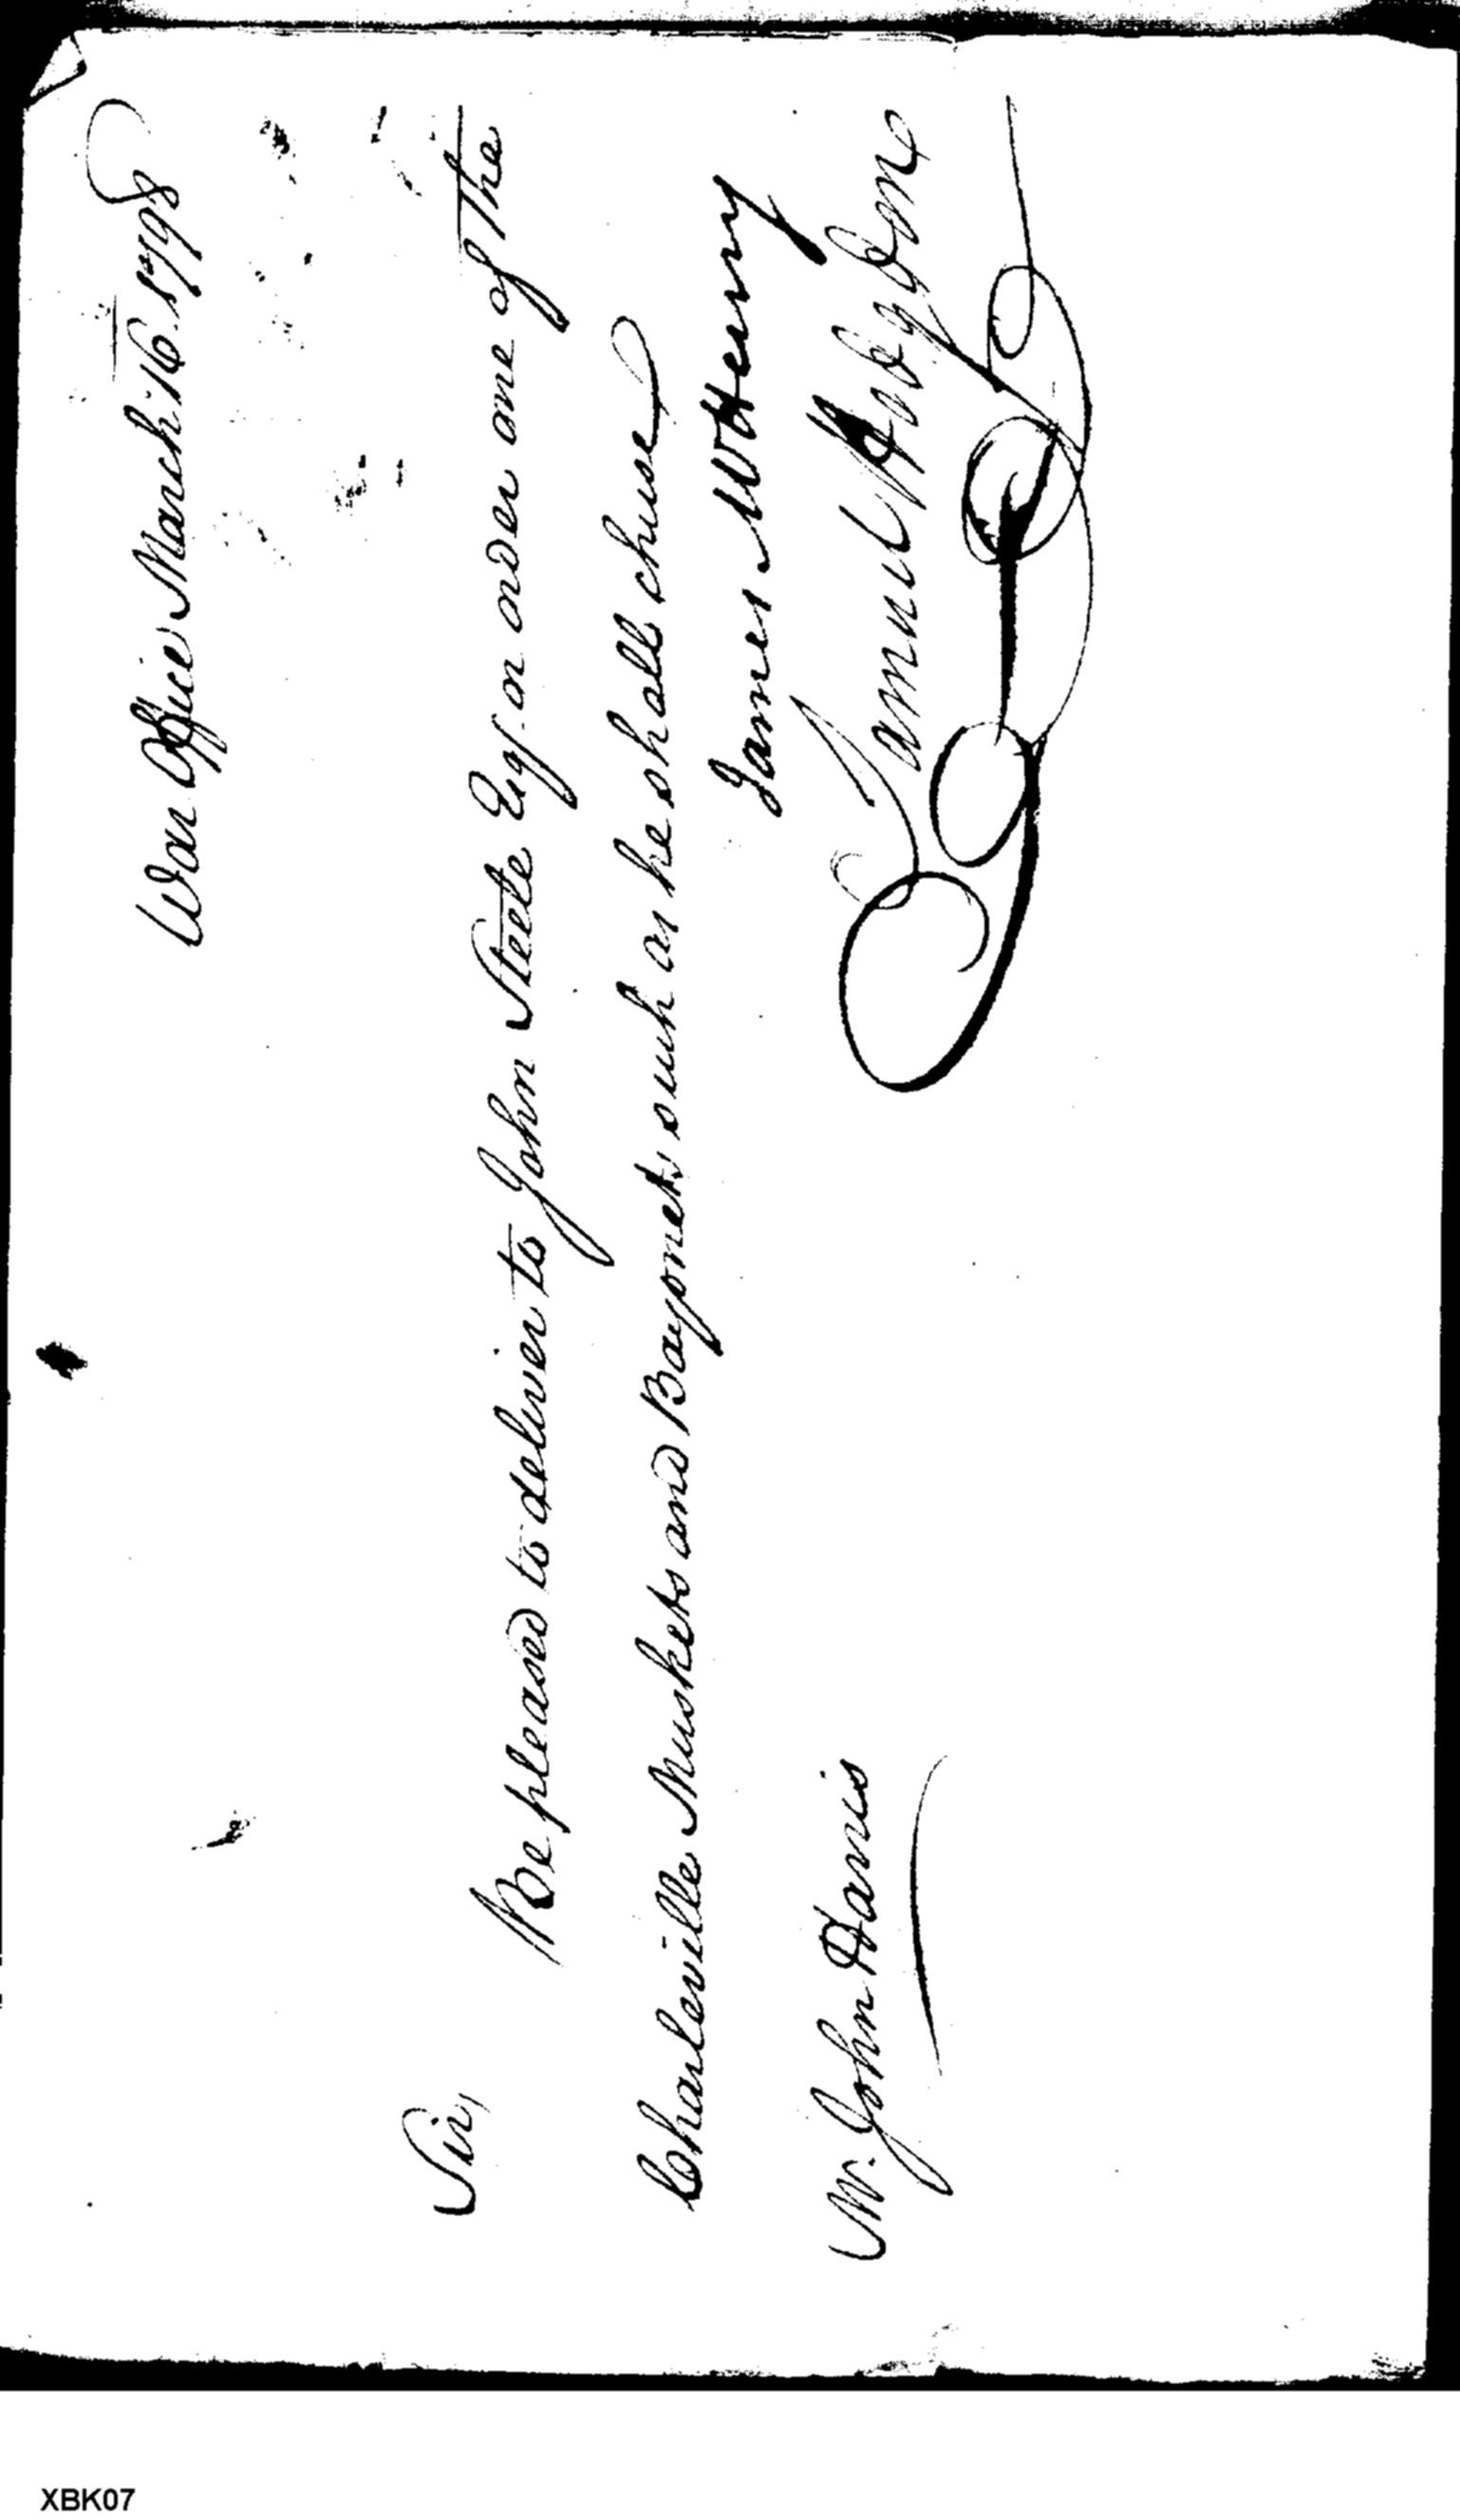 War Office March 16. 1798
Sir,
Be pleased to deliver to John Steele Esq. or order one of The
Charleville Muskets and Bayonets such as he shall chuse
James McHenry
Samuel Hodgdon
Mr. John Harris
XBK07